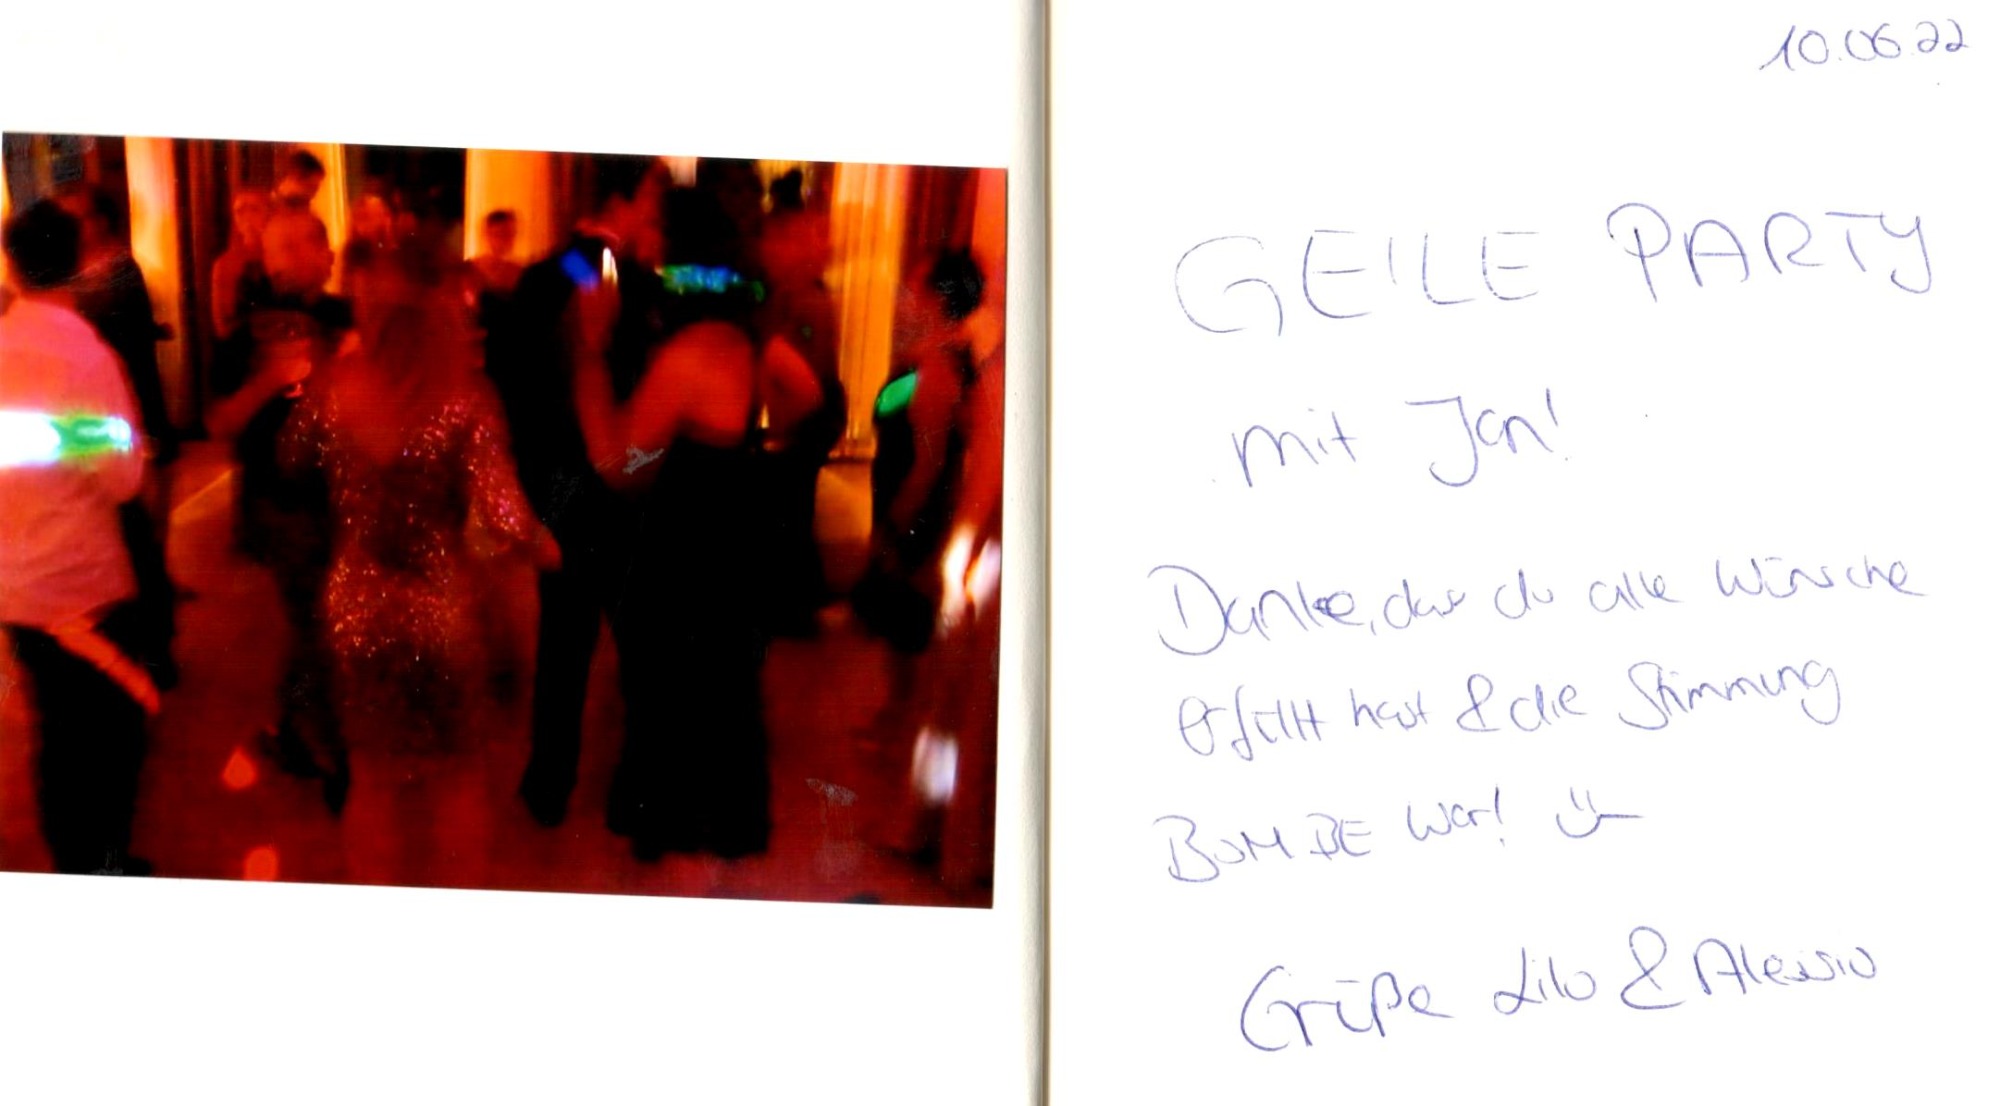 10.06.22
GEILE PARTY
mit Jan!
Danke, das du alle Wünsche
erfüllt hast & die Stimmung
BOMBE war! ü
Grüße Lilo & Alessio